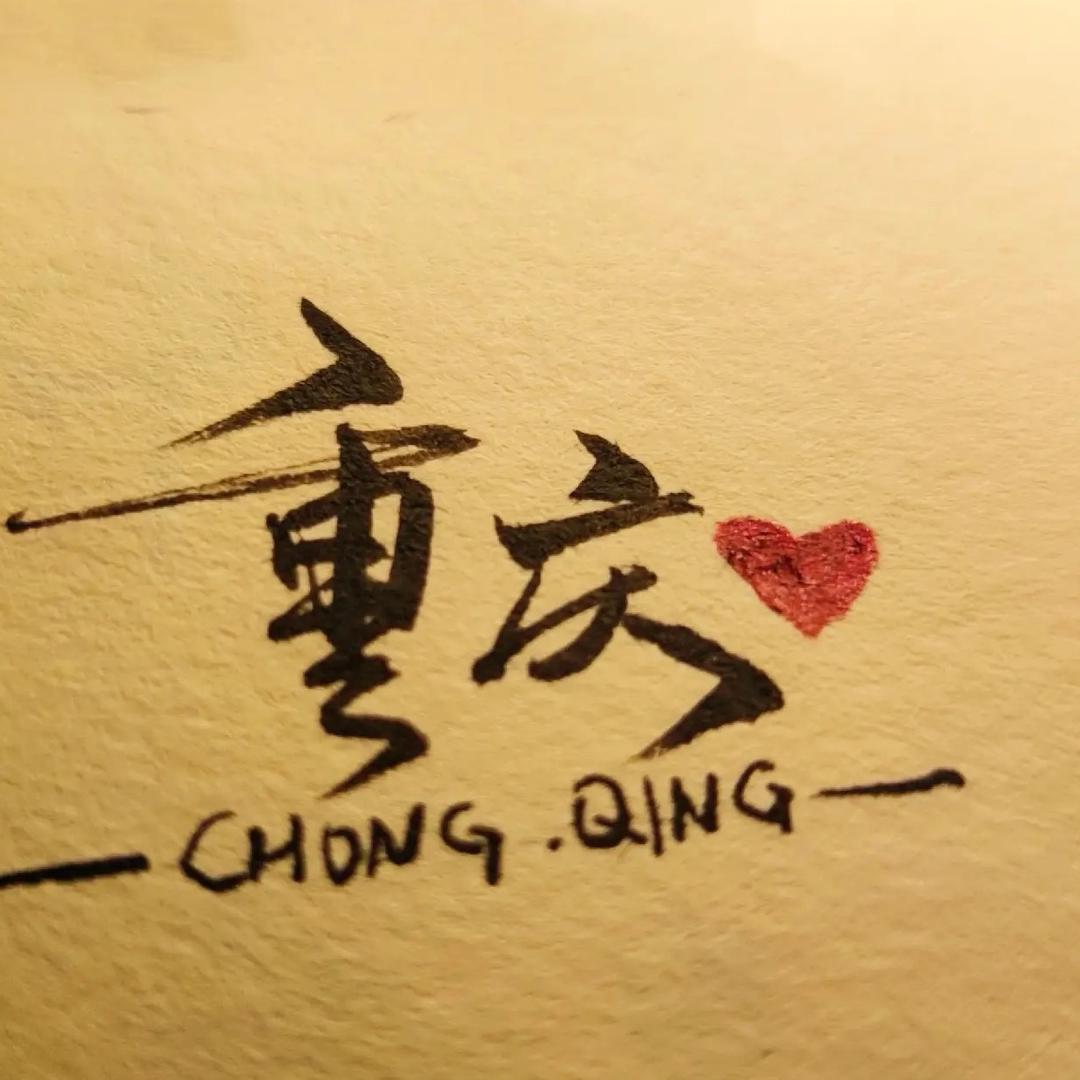 重庆
CHONG.QING